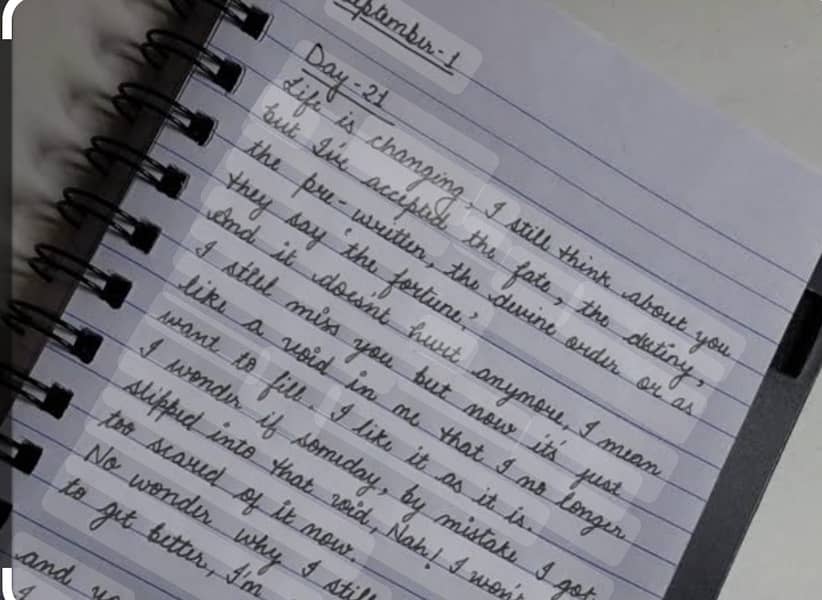 September-1
Day-21
Life is changing, I still think about you
but I've accepted the fate, the dutiny,
the pre-written, the devine order or as
they say 'the fortune;
And it doesn't hurt anymore, I mean
I still miss you but now it's just
like a void in me that I no longer
want to fill. I like it as it is.
I wonder if someday, by mistake I got
slipped into that void, Nah! I won't
too scared of it now.
No wonder why I still
to get better, I'm
and
I